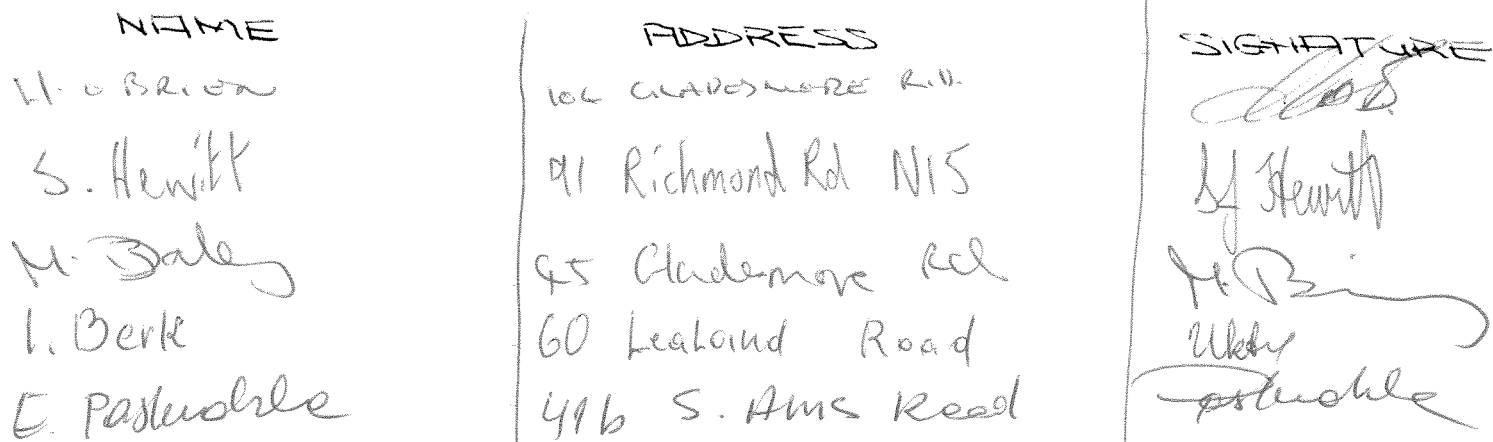 NAME ADDRESS SIGNATURE
H. O BRIEN 104 GLADESMORE RD.
S. Hewitt 91 Richmond Rd N15 SJ Hewitt
M. Baley 45 Glademore Rd M. B
I. Berk 60 Lealand Road
E. 41b S. Ams Road